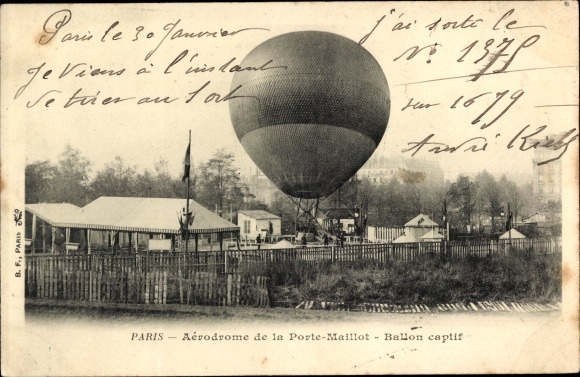 Paris le 30 Janvier
Je Viens à l'instant
de tirer au Sort
j'ai sorti le
N° 1375
sur 1679
André
B. F., PARIS
PARIS — Aérodrome de la Porte-Maillot - Ballon captif